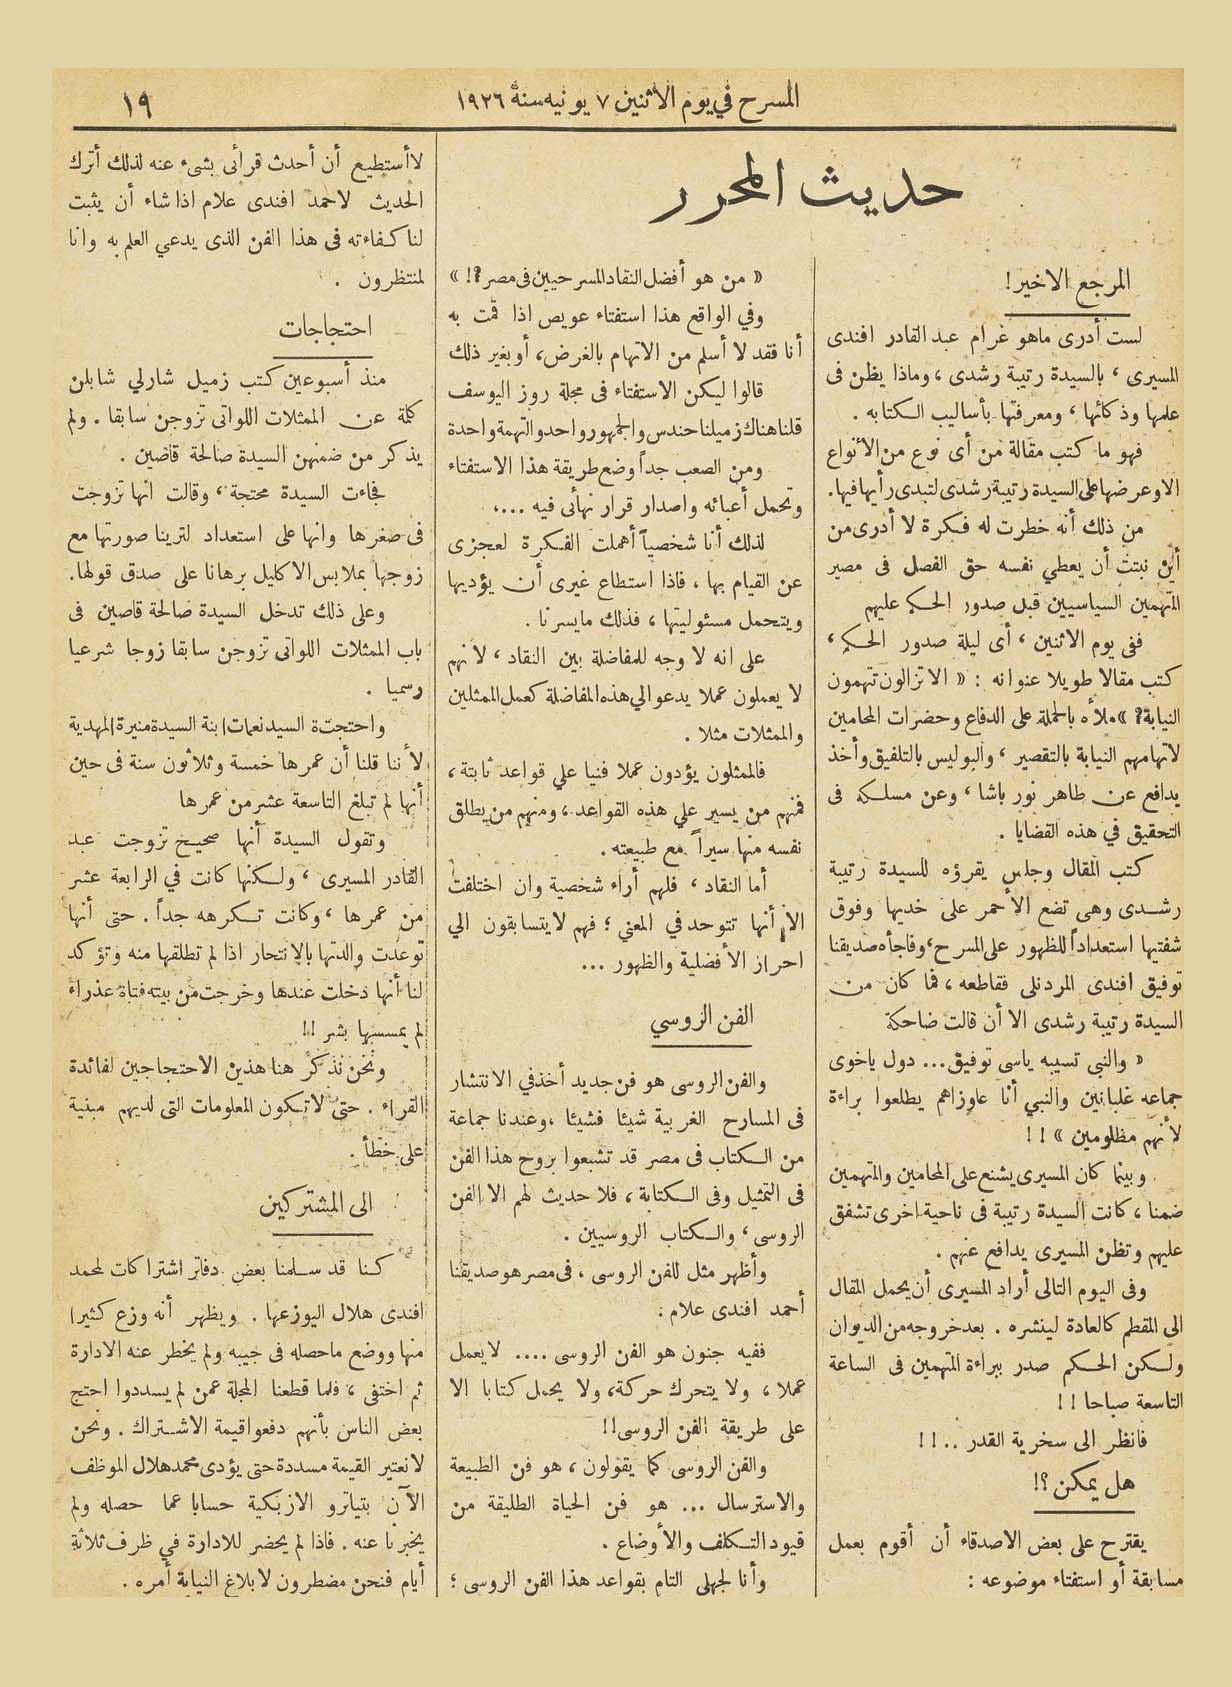 المسرح في يوم الاثنين ٧ يونيه سنة ١٩٢٦
١٩
حديث المحرر
المرجع الاخير!
لست أدرى ماهو غرام عبد القادر افندى
المسيرى ، بالسيدة رتيبة رشدى ، وماذا يظن فى
علمها وذكائها ، ومعرفتها بأساليب الكتابه .
فهو ما كتب مقالة من أى نوع من الأنواع
الاوعرضها على السيدة رتيبة رشدى لتبدى رأيها فيها.
من ذلك أنه خطرت له فكرة لا أدرى من
أين نبتت أن يعطي نفسه حق الفصل فى مصير
المتهمين السياسيين قبل صدور الحكم عليهم
ففى يوم الاثنين ، أى ليلة صدور الحكم ،
كتب مقالا طويلا عنوانه : « الاتزالون تتهمون
النيابة؟ » ملأه بالحملة على الدفاع وحضرات المحامين
لاتهامهم النيابة بالتقصير ، والبوليس بالتلفيق وأخذ
يدافع عن طاهر نور باشا ، وعن مسلكه فى
التحقيق في هذه القضايا .
كتب المقال وجلس يقرؤه للسيدة رتيبة
رشدى وهى تضع الأحمر على خديها وفوق
شفتيها استعداداً للظهور على المسرح ، وفاجأه صديقنا
توفيق افندى المردنلى فقاطعه ، فما كان من
السيدة رتيبة رشدى الا أن قالت ضاحكة
« والنبي تسيبه ياسى توفيق... دول ياخوى
جماعه غلبانين والنبي أنا عاوزاهم يطلعوا براءة
لأنهم مظلومين » ! !
وبينما كان المسيرى يشنع على المحامين والمتهمين
ضمنا ، كانت السيدة رتيبة فى ناحية اخرى تشفق
عليهم وتظن المسيرى يدافع عنهم .
وفى اليوم التالى أراد المسيرى أن يحمل المقال
الى المقطم كالعادة لينشره . بعد خروجه من الديوان
ولكن الحكم صدر ببراءة المتهمين فى الساعة
التاسعة صباحا ! !
فانظر الى سخرية القدر .. ! !
هل يمكن ؟!
يقترح على بعض الاصدقاء أن أقوم بعمل
مسابقة أو استفتاء موضوعه :
« من هو أفضل النقاد المسرحيين فى مصر؟! »
وفي الواقع هذا استفتاء عويص اذا قمت به
أنا فقد لا أسلم من الاتهام بالغرض، أو بغير ذلك
قالوا ليكن الاستفتاء فى مجلة روز اليوسف
قلنا هناك زميلنا حندس والجمهور واحد والتهمة واحدة
ومن الصعب جداً وضع طريقة هذا الاستفتاء
وتحمل أعبائه واصدار قرار نهائى فيه ...،
لذلك أنا شخصياً أهملت الفكرة لعجزى
عن القيام بها ، فاذا استطاع غيرى أن يؤديها
ويتحمل مسئوليتها ، فذلك مايسرنا .
على انه لا وجه للمفاضلة بين النقاد ، لانهم
لا يعملون عملا يدعو الي هذه المفاضلة كعمل الممثلين
والممثلات مثلا .
فالممثلون يؤدون عملا فنيا علي قواعد ثابتة ،
فمنهم من يسير علي هذه القواعد ، ومنهم من يطلق
نفسه منها سيراً مع طبيعته .
أما النقاد ، فلهم أراء شخصية وان اختلفت
الا أنها تتوحد في المعني ؛ فهم لايتسابقون الي
احراز الأفضلية والظهور ...
الفن الروسي
والفن الروسى هو فن جديد أخذ في الانتشار
فى المسارح الغربية شيئا فشيئا ، وعندنا جماعة
من الكتاب فى مصر قد تشبعوا بروح هذا الفن
فى التمثيل وفى الكتابة ، فلا حديث لهم الا الفن
الروسى ، والكتاب الروسيين .
وأظهر مثل للفن الروسى ، فى مصر هو صديقنا
أحمد افندى علام .
ففيه جنون هو الفن الروسى .... لايعمل
عملا ، ولا يتحرك حركة ، ولا يحمل كتابا الا
على طريقة الفن الروسى!!
والفن الروسى كما يقولون ، هو فن الطبيعة
والاسترسال ... هو فن الحياة الطليقة من
قيود التكلف والأوضاع .
وأنا لجهلى التام بقواعد هذا الفن الروسى ؛
لاأستطيع أن أحدث قرائى بشىء عنه لذلك أترك
الحديث لاحمد افندى علام اذا شاء أن يثبت
لنا كفاءته فى هذا الفن الذى يدعي العلم به وانا
لمنتظرون .
احتجاجات
منذ أسبوعين كتب زميل شارلي شابلن
كلمة عن الممثلات اللواتى تزوجن سابقا . ولم
يذكر من ضمنهن السيدة صالحة قاضين .
فجاءت السيدة محتجة ، وقالت انها تزوجت
فى صغرها وانها على استعداد لترينا صورتها مع
زوجها بملابس الاكليل برهانا على صدق قولها.
وعلى ذلك تدخل السيدة صالحة قاصين فى
باب الممثلات اللواتى تزوجن سابقا زوجا شرعيا
رسميا .
واحتجت السيد نعمات ابنة السيدة منيرة المهدية
لأننا قلنا أن عمرها خمسة وثلاثون سنة فى حين
أنها لم تبلغ التاسعة عشر من عمرها
وتقول السيدة أنها صحيح تزوجت عبد
القادر المسيرى ، ولكنها كانت في الرابعة عشر
من عمرها ، وكانت تكرهه جداً . حتى أنها
توعدت والدتها بالإنتحار اذا لم تطلقها منه وتؤكد
لنا أنها دخلت عندها وخرجت من بيته فتاة عذراء
لم يمسسها بشر !!
ونحن نذكر هنا هذين الاحتجاجين لفائدة
القراء . حتى لاتكون المعلومات التى لديهم مبنية
على خطأ .
الى المشتركين
كنا قد سلمنا بعض دفاتر اشتراكات لمحمد
افندى هلال اليوزعها . ويظهر أنه وزع كثيرا
منها ووضع ماحصله فى جيبه ولم يخطر عنه الادارة
ثم اختفى ، فلما قطعنا المجلة عمن لم يسددوا احتج
بعض الناس بأنهم دفعوا قيمة الاشتراك . ونحن
لانعتبر القيمة مسددة حتى يؤدى محمد هلال الموظف
الآن بتياترو الازبكية حسابا عما حصله ولم
يخبرنا عنه . فاذا لم يحضر للادارة في ظرف ثلاثة
أيام فنحن مضطرون لابلاغ النيابة أمره .